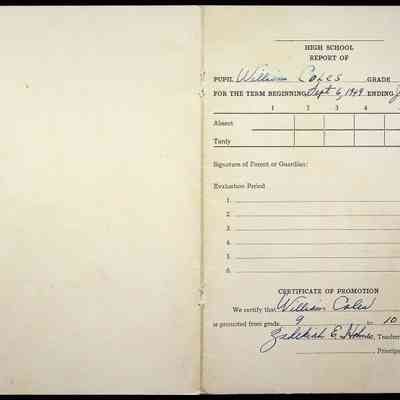 HIGH SCHOOL
REPORT OF
PUPIL William Coles GRADE
FOR THE TERM BEGINNING Sept 6, 1949 ENDING
1 2 3 4
Absent
Tardy
Signature of Parent or Guardian:
Evaluation Period
1.
2.
3.
4.
5.
6.
CERTIFICATE OF PROMOTION
We certify that William Coles
is promoted from grade 9 to 10
Zedekiah E. Holmes, Teacher
Principal